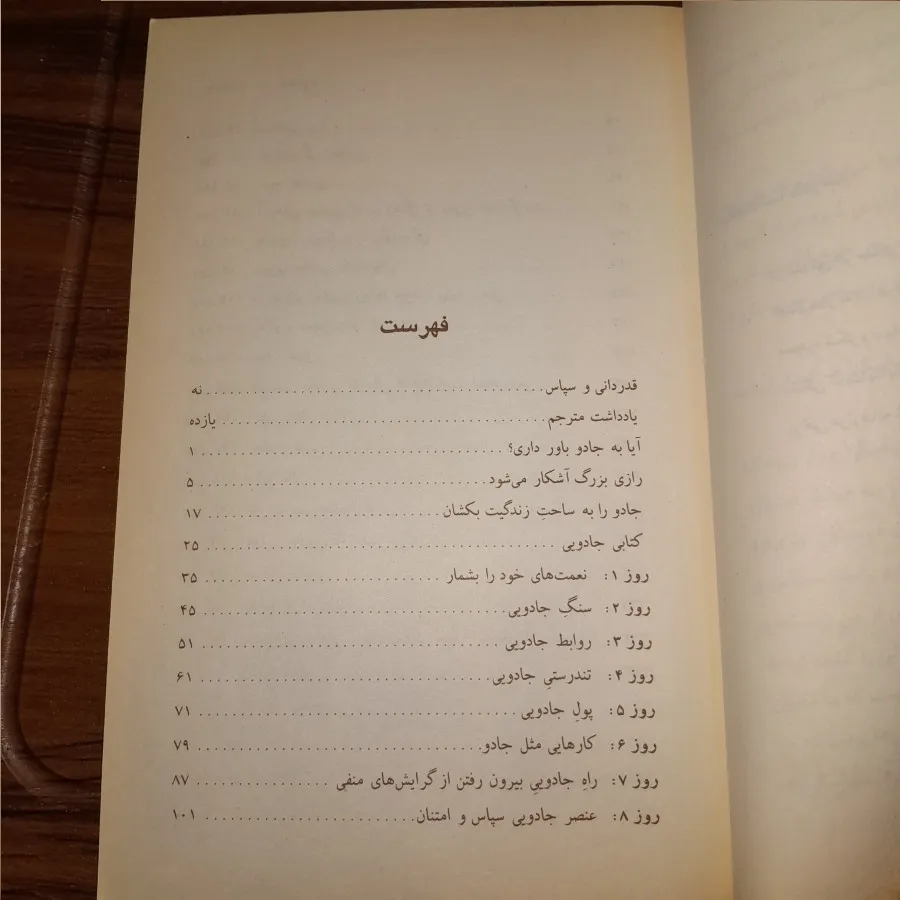 فهرست
قدردانی و سپاس ........................................ نه
یادداشت مترجم ........................................ یازده
آیا به جادو باور داری؟ ........................................ ۱
رازی بزرگ آشکار می‌شود ........................................ ۵
جادو را به ساحتِ زندگیت بکشان .............................. ۱۷
کتابی جادویی ........................................ ۲۵
روز ۱: نعمت‌های خود را بشمار .............................. ۳۵
روز ۲: سنگِ جادویی ........................................ ۴۵
روز ۳: روابط جادویی ........................................ ۵۱
روز ۴: تندرستیِ جادویی ........................................ ۶۱
روز ۵: پولِ جادویی ........................................ ۷۱
روز ۶: کارهایی مثل جادو ........................................ ۷۹
روز ۷: راهِ جادوییِ بیرون رفتن از گرایش‌های منفی ................. ۸۷
روز ۸: عنصر جادویی سپاس و امتنان .............................. ۱۰۱